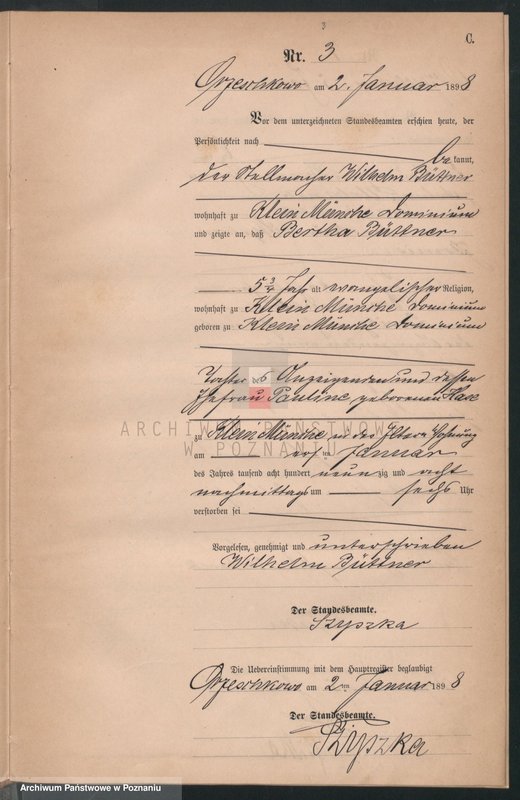 3
C.
Nr. 3
Orzeschkowo am 2. Januar 1898
Vor dem unterzeichneten Standesbeamten erschien heute, der
Persönlichkeit nach be kannt,
der Stellmacher Wilhelm Büttner
wohnhaft zu Klein Münche Dominium
und zeigte an, daß Bertha Büttner
5 3/4 Jahr alt evangelischer Religion,
wohnhaft zu Klein Münche Dominium
geboren zu Klein Münche Dominium
Tochter des Anzeigenden und dessen
Ehefrau Pauline geborenen Hase
zu Klein Münche in der Eltern Wohnung
am ersten Januar
des Jahres tausend acht hundert neun zig und acht
nachmittags um sechs Uhr
verstorben sei
Vorgelesen, genehmigt und unterschrieben
Wilhelm Büttner
Der Standesbeamte.
Szyszka
Die Uebereinstimmung mit dem Hauptregister beglaubigt
Orzeschkowo am 2ten Januar 1898
Der Standesbeamte.
Szyszka
ARCHIWUM PAŃSTWOWE
W POZNANIU
Archiwum Państwowe w Poznaniu